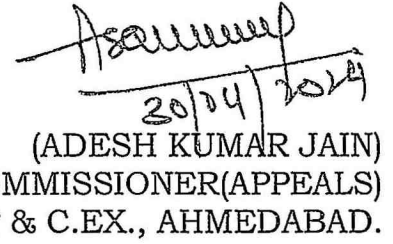 30/04/2024
(ADESH KUMAR JAIN)
MMISSIONER(APPEALS)
& C.EX., AHMEDABAD.